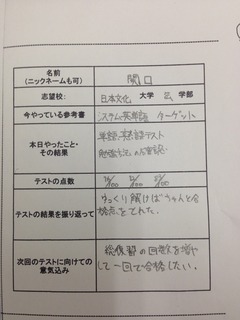 名前
(ニックネームも可)
関口
志望校:
日本文化 大学 法 学部
今やっている参考書
システム英単語 ターゲット
本日やったこと・
その結果
単語・熟語テスト
勉強方法の確認
テストの点数
/100 /100 /100
テストの結果を振り返って
ゆっくり解けばちゃんと合
格点をとれた。
次回のテストに向けての
意気込み
総復習の回数を増や
して一回で合格したい。